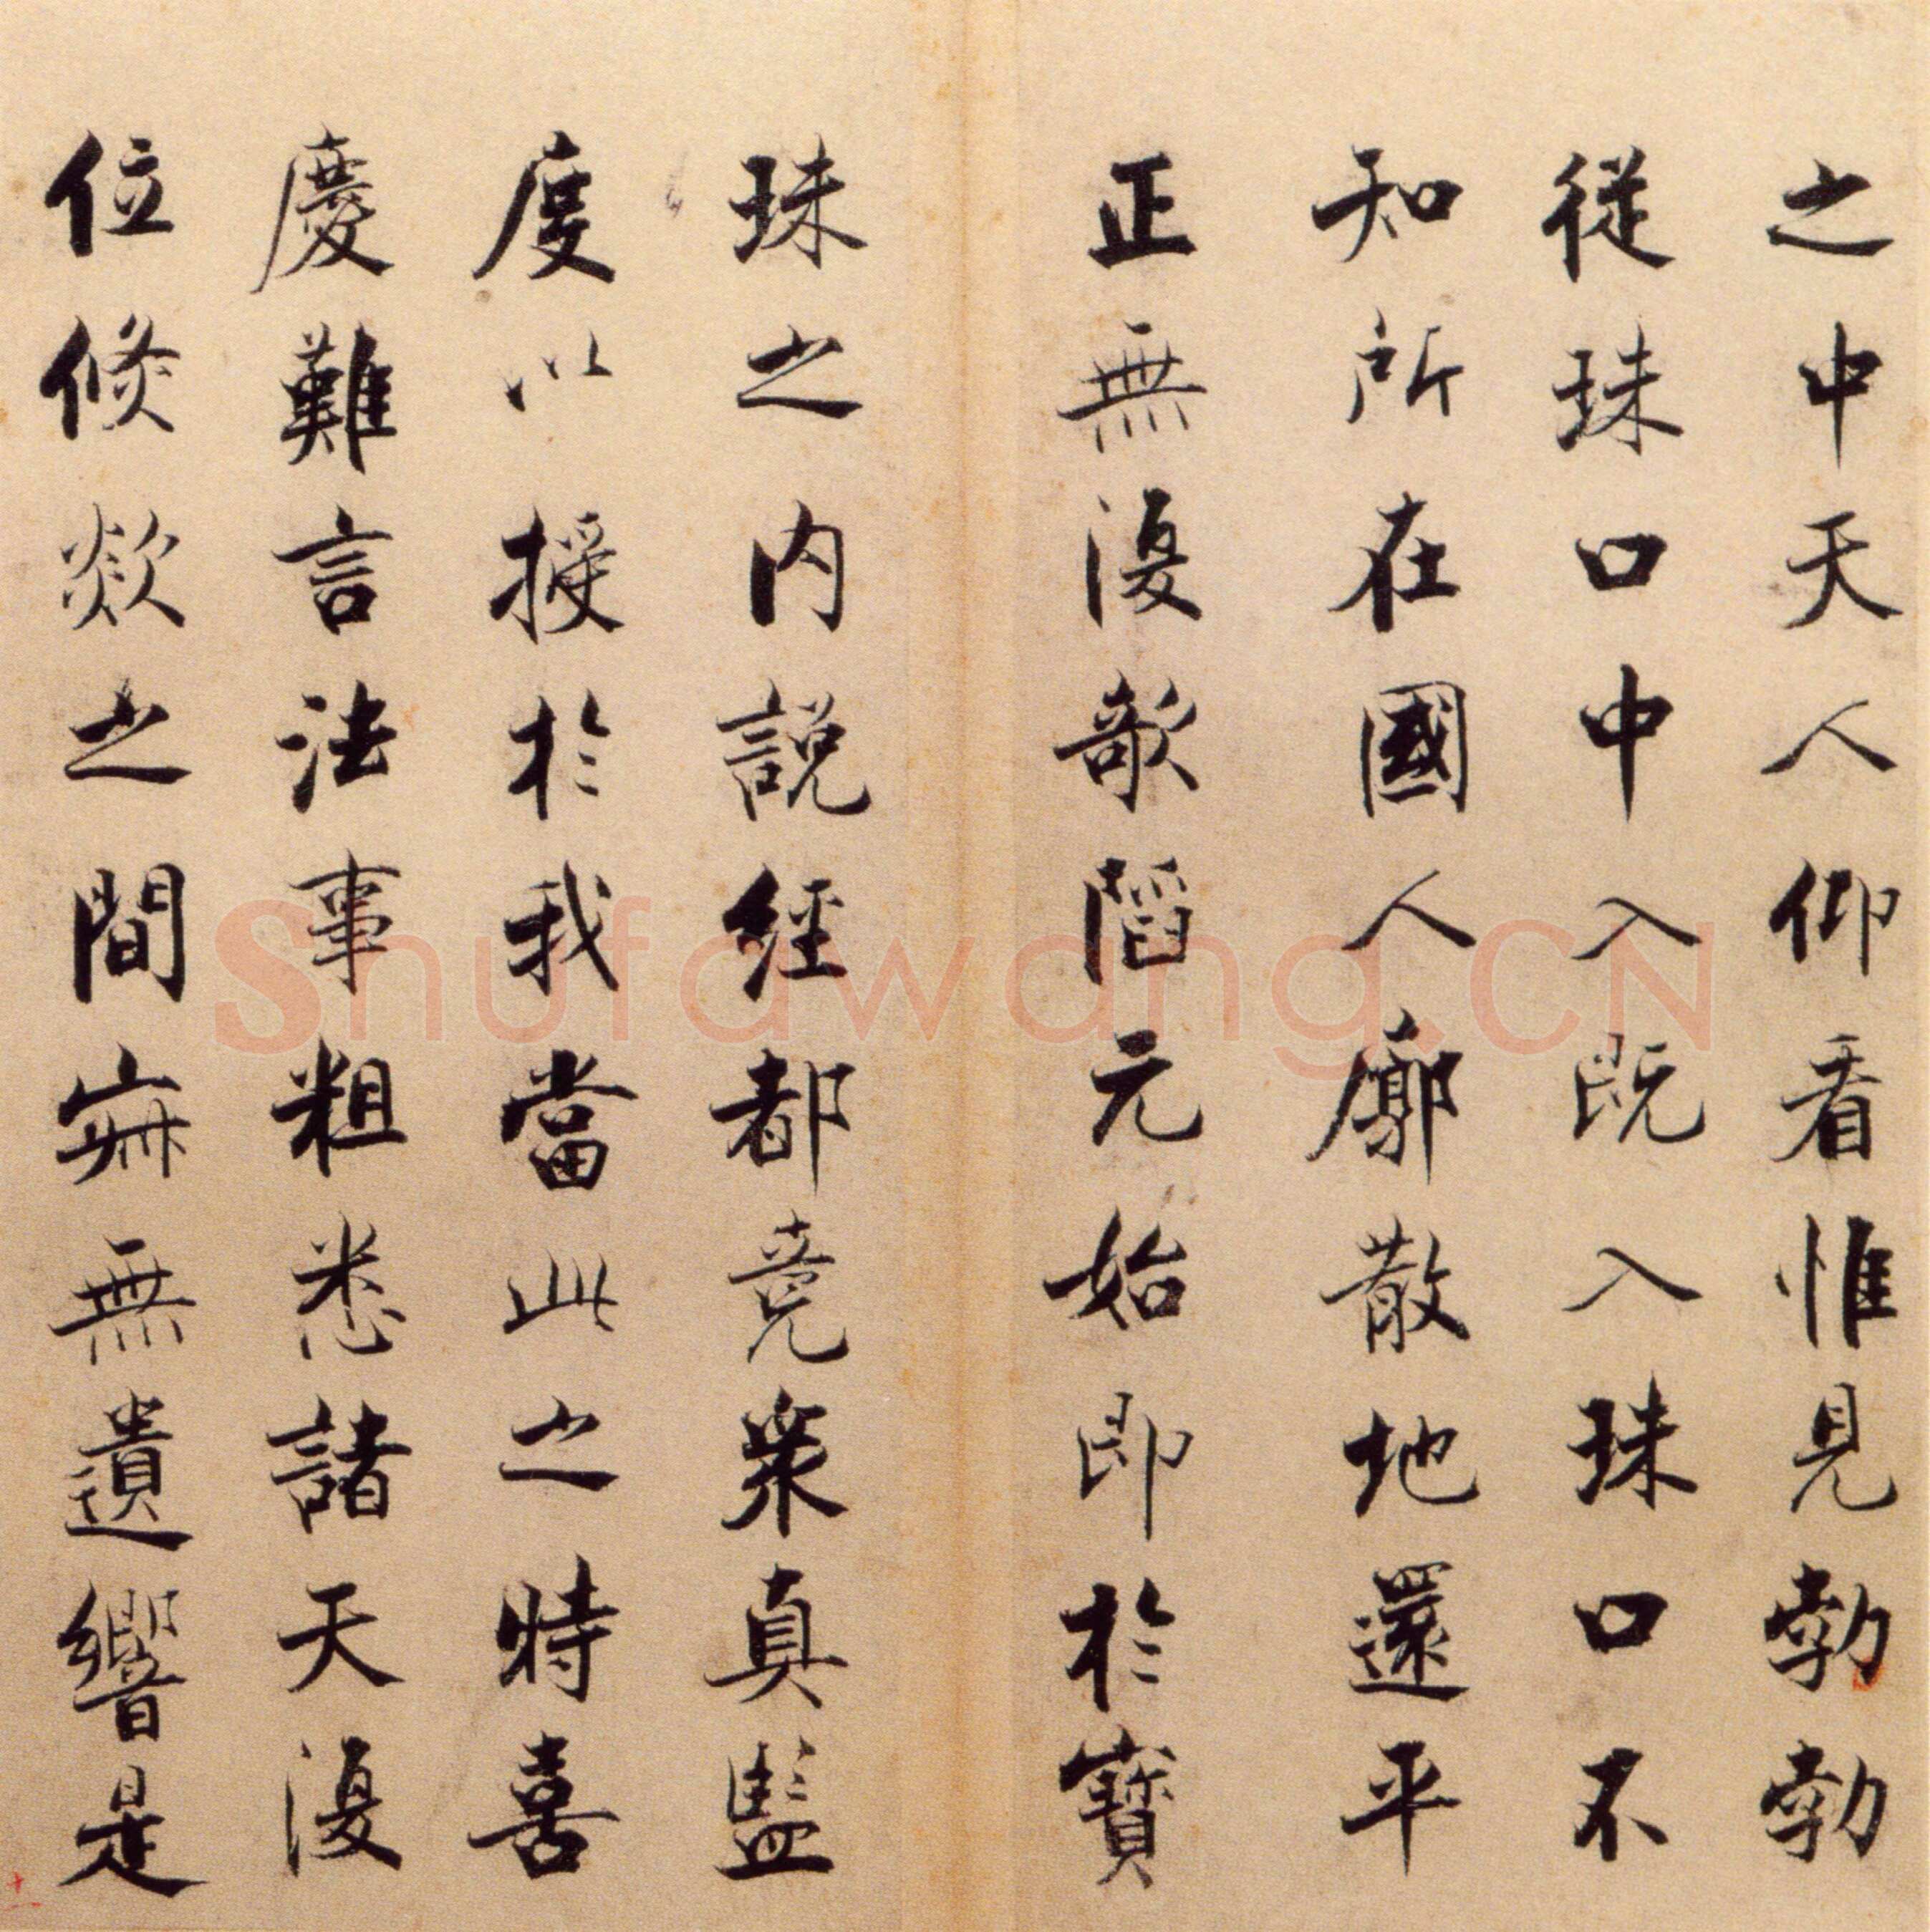 之中天人仰看惟見勃勃
從珠口中入既入珠口不
知所在國人廓散地還平
正無復欹陷元始即於寶
珠之内說經都竟衆真監
度以授於我當此之時喜
慶難言法事粗悉諸天復
位倏欻之間寂無遺響是
Shufawang.CN
十一